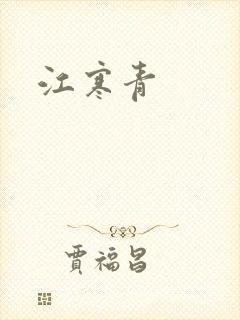 江寒青
賈福昌